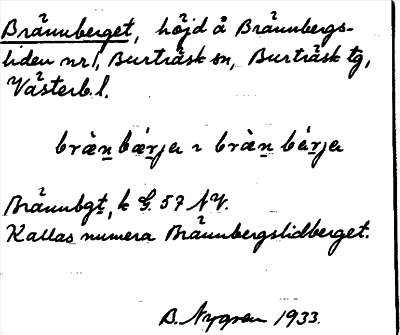 Brännberget, höjd å Brännbergs-
liden nr 1, Burträsk sn, Burträsk tg,
Västerb. l.
bràn bǽrja ɿ bràn bérja
Brännbgt, k G. 57 NV.
Kallas numera Brännbergslidberget.
B. Nygren 1933.